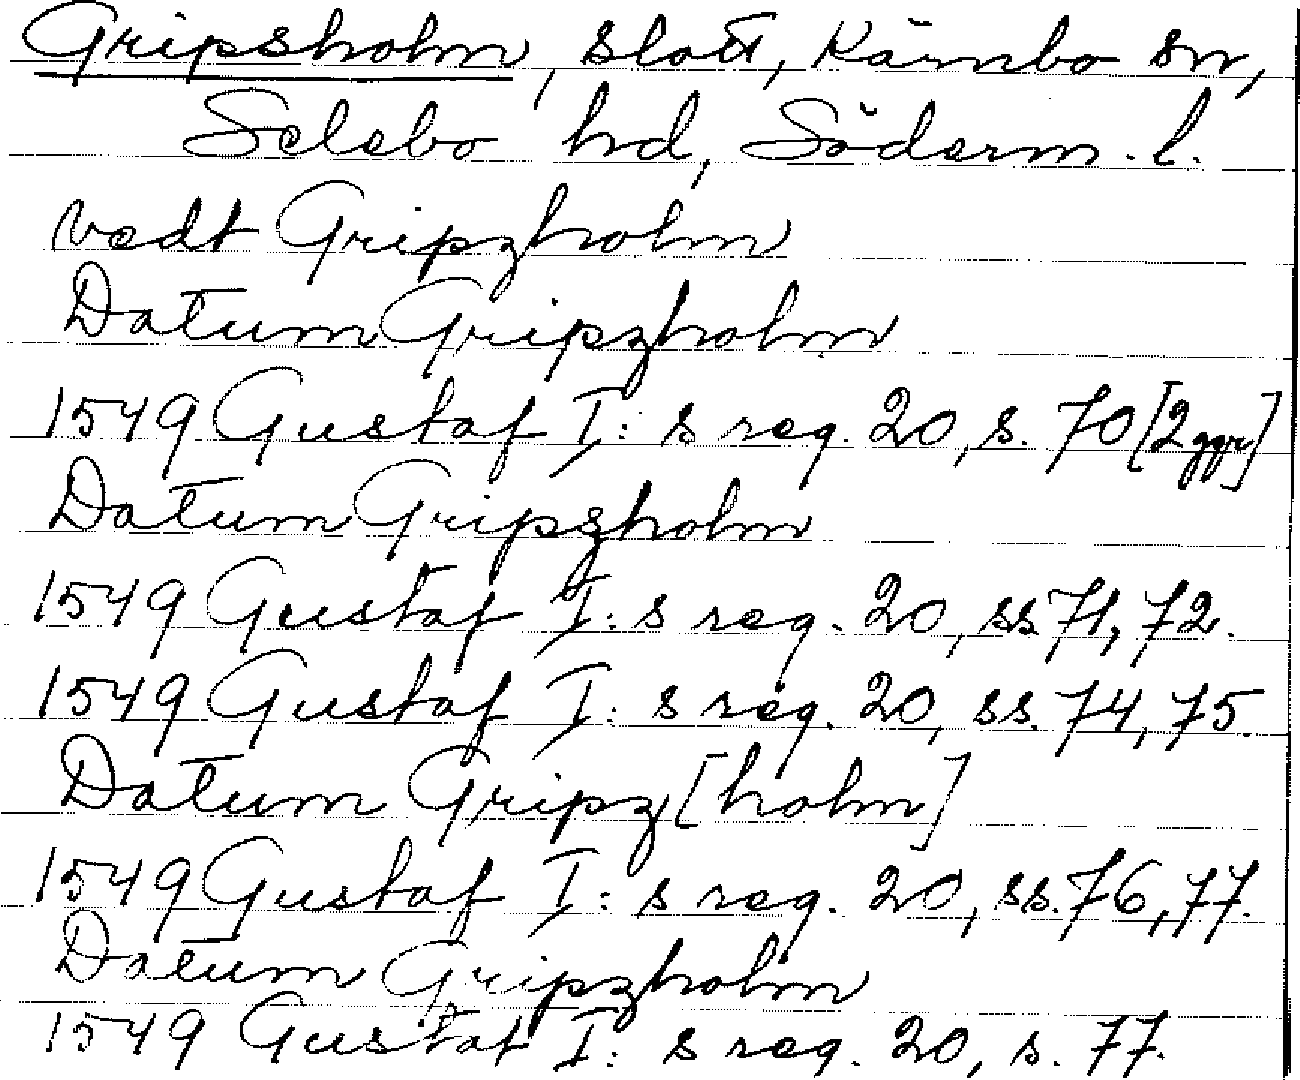 Gripsholm, slott, Kärnbo sn,
Selebo hd, Söderm. l.
vedt Gripzholm
Datum Gripzholm
1549 Gustaf I:s reg. 20, s. 70 [2 ggr]
Datum Gripsholm
1549 Gustaf I:s reg. 20, ss. 71, 72.
1549 Gustaf I:s reg. 20, ss. 74, 75.
Datum Gripz[holm]
1549 Gustaf I:s reg. 20, ss. 76, 77.
Datum Gripzholm
1549 Gustaf I:s reg. 20, s. 77.